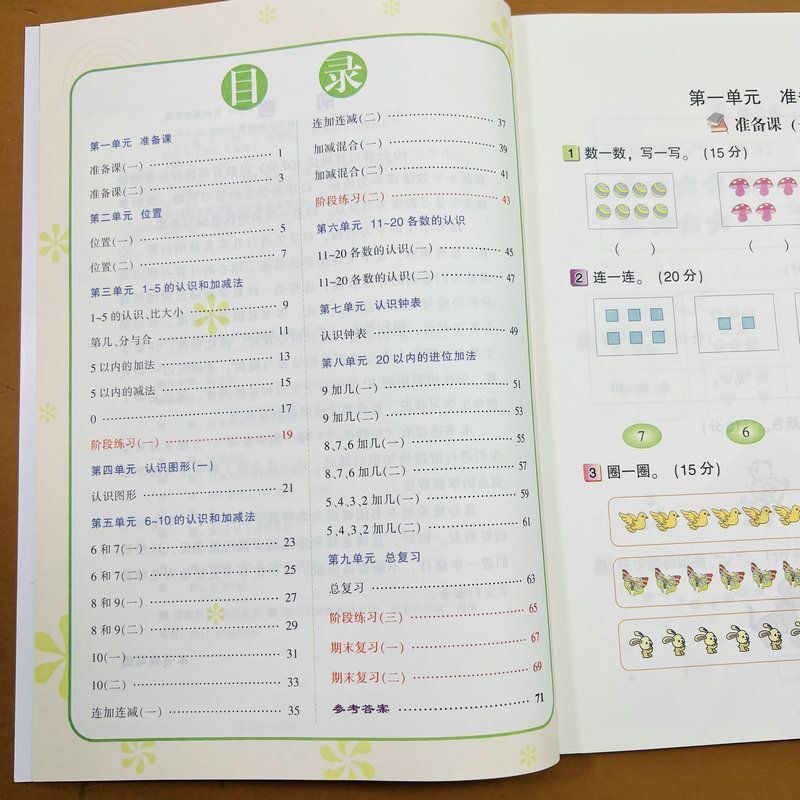 目 录
第一单元 准备课
准备课(一) 1
准备课(二) 3
第二单元 位置
位置(一) 5
位置(二) 7
第三单元 1~5的认识和加减法
1~5的认识、比大小 9
第几、分与合 11
5以内的加法 13
5以内的减法 15
0 17
阶段练习(一) 19
第四单元 认识图形(一)
认识图形 21
第五单元 6-10的认识和加减法
6和7(一) 23
6和7(二) 25
8和9(一) 27
8和9(二) 29
10(一) 31
10(二) 33
连加连减(一) 35
连加连减(二) 37
加减混合(一) 39
加减混合(二) 41
阶段练习(二) 43
第六单元 11~20各数的认识
11~20各数的认识(一) 45
11~20各数的认识(二) 47
第七单元 认识钟表
认识钟表 49
第八单元 20以内的进位加法
9加几(一) 51
9加几(二) 53
8、7、6加几(一) 55
8、7、6加几(二) 57
5、4、3、2加几(一) 59
5、4、3、2加几(二) 61
第九单元 总复习
总复习 63
阶段练习(三) 65
期末复习(一) 67
期末复习(二) 69
参考答案 71
第一单元 准
准备课(
1 数一数，写一写。(15分)
( ) ( )
2 连一连。(20分)
7 6
3 圈一圈。(15分)